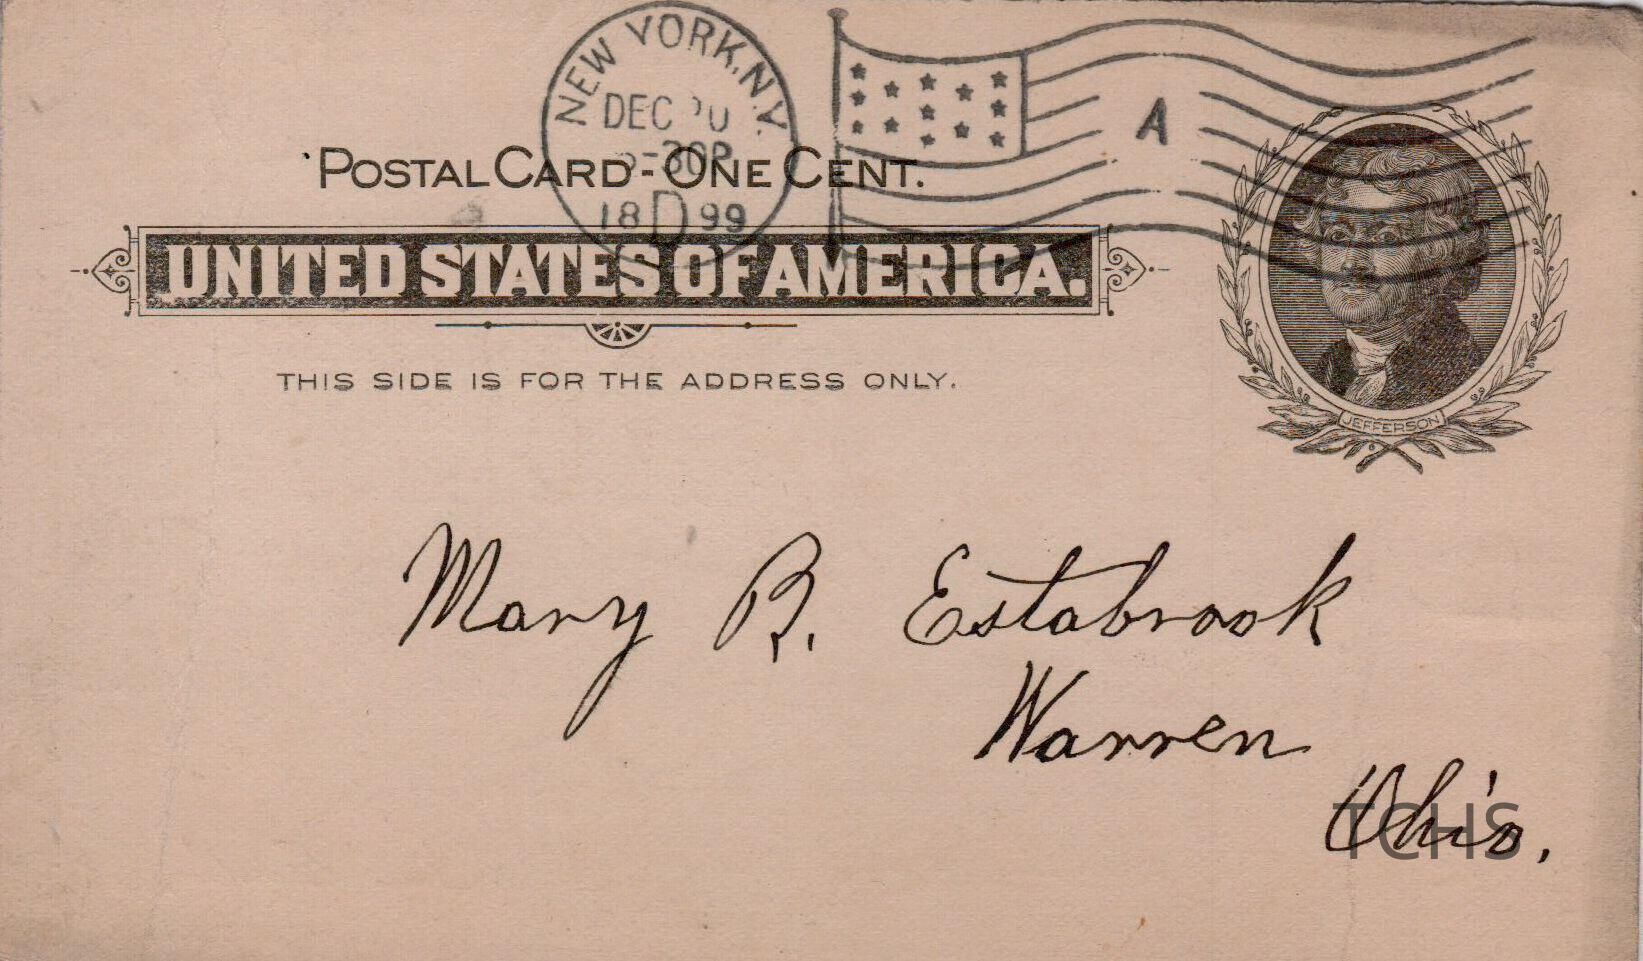 NEW YORK, N.Y.
DEC
-30P
18 D 99
A
POSTAL CARD - ONE CENT.
UNITED STATES OF AMERICA.
THIS SIDE IS FOR THE ADDRESS ONLY.
JEFFERSON
Mary B. Estabrook
Warren
Ohio.
TCHS